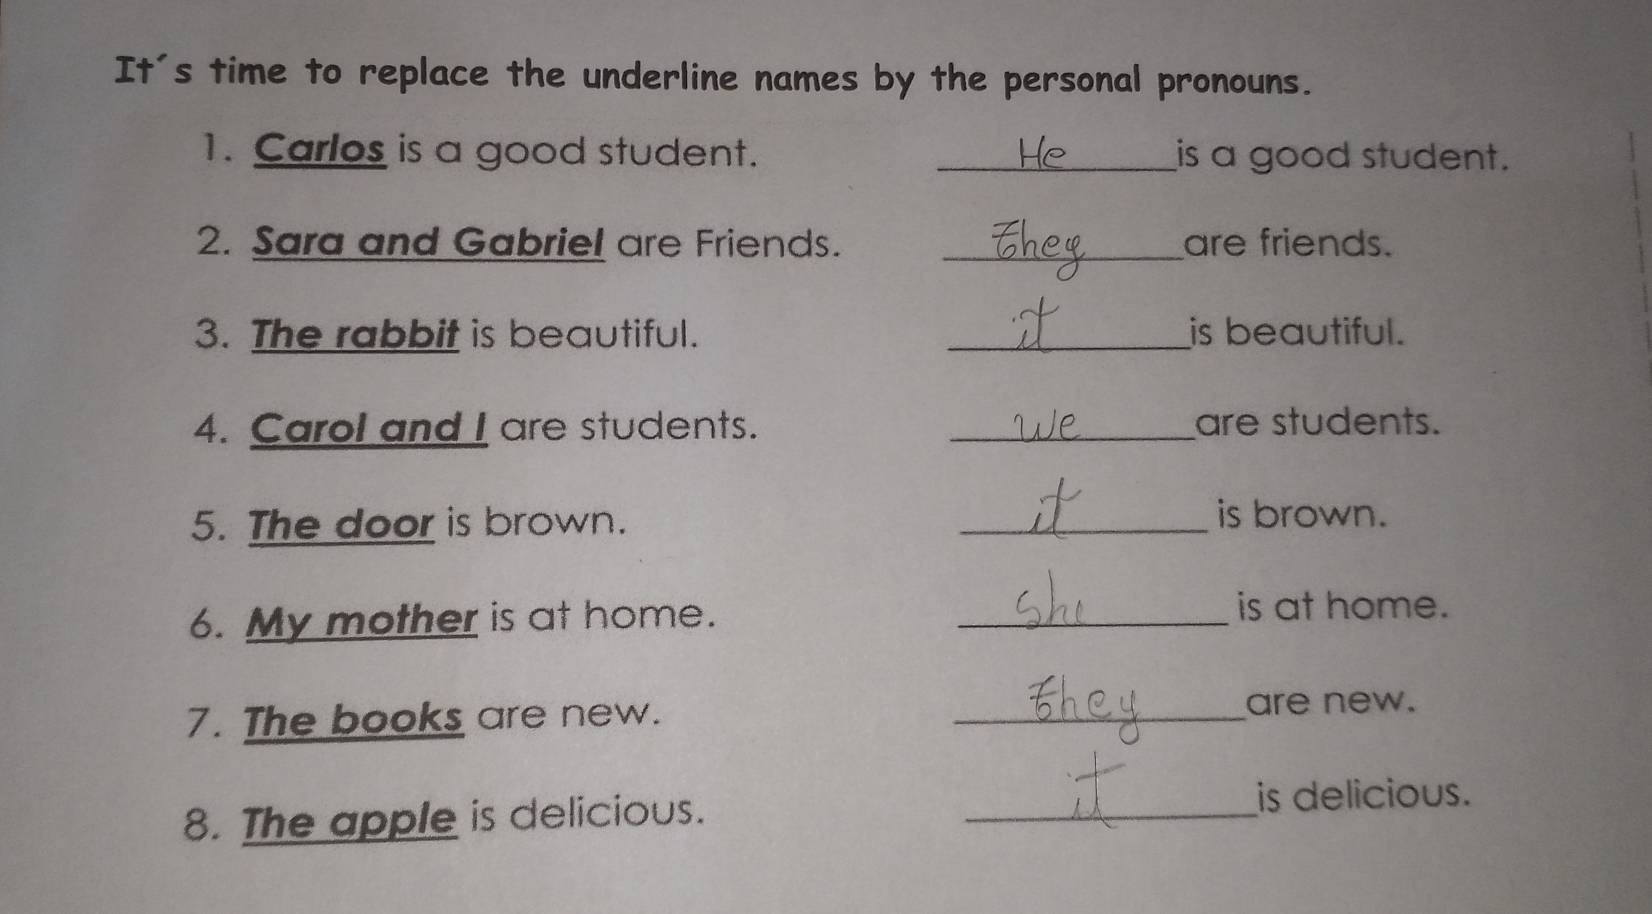 It´s time to replace the underline names by the personal pronouns.
1. Carlos is a good student. He is a good student.
2. Sara and Gabriel are Friends. they are friends.
3. The rabbit is beautiful. it is beautiful.
4. Carol and I are students. we are students.
5. The door is brown. it is brown.
6. My mother is at home. She is at home.
7. The books are new. they are new.
8. The apple is delicious. it is delicious.